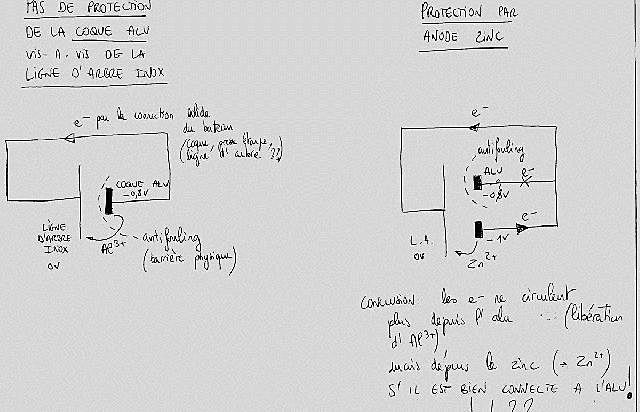 PAS DE PROTECTION
DE LA COQUE ALU
VIS-A-VIS DE LA
LIGNE D'ARBRE INOX
e- par la connection
du bateau
(coque, presse étoupe,
ligne d'arbre ??)
COQUE ALU
-0,8V
LIGNE
D'ARBRE
INOX
0V
Al3+
antifouling
(barrière physique)
PROTECTION PAR
ANODE ZINC
e-
antifouling
ALU
e-
-0,8V
e-
-1V
L.A.
0V
Zn2+
CONCLUSION: les e- ne circulent
plus depuis l'alu ... (libération
d'Al3+)
mais depuis le zinc (→ Zn2+)
S'IL EST BIEN CONNECTE A L'ALU!